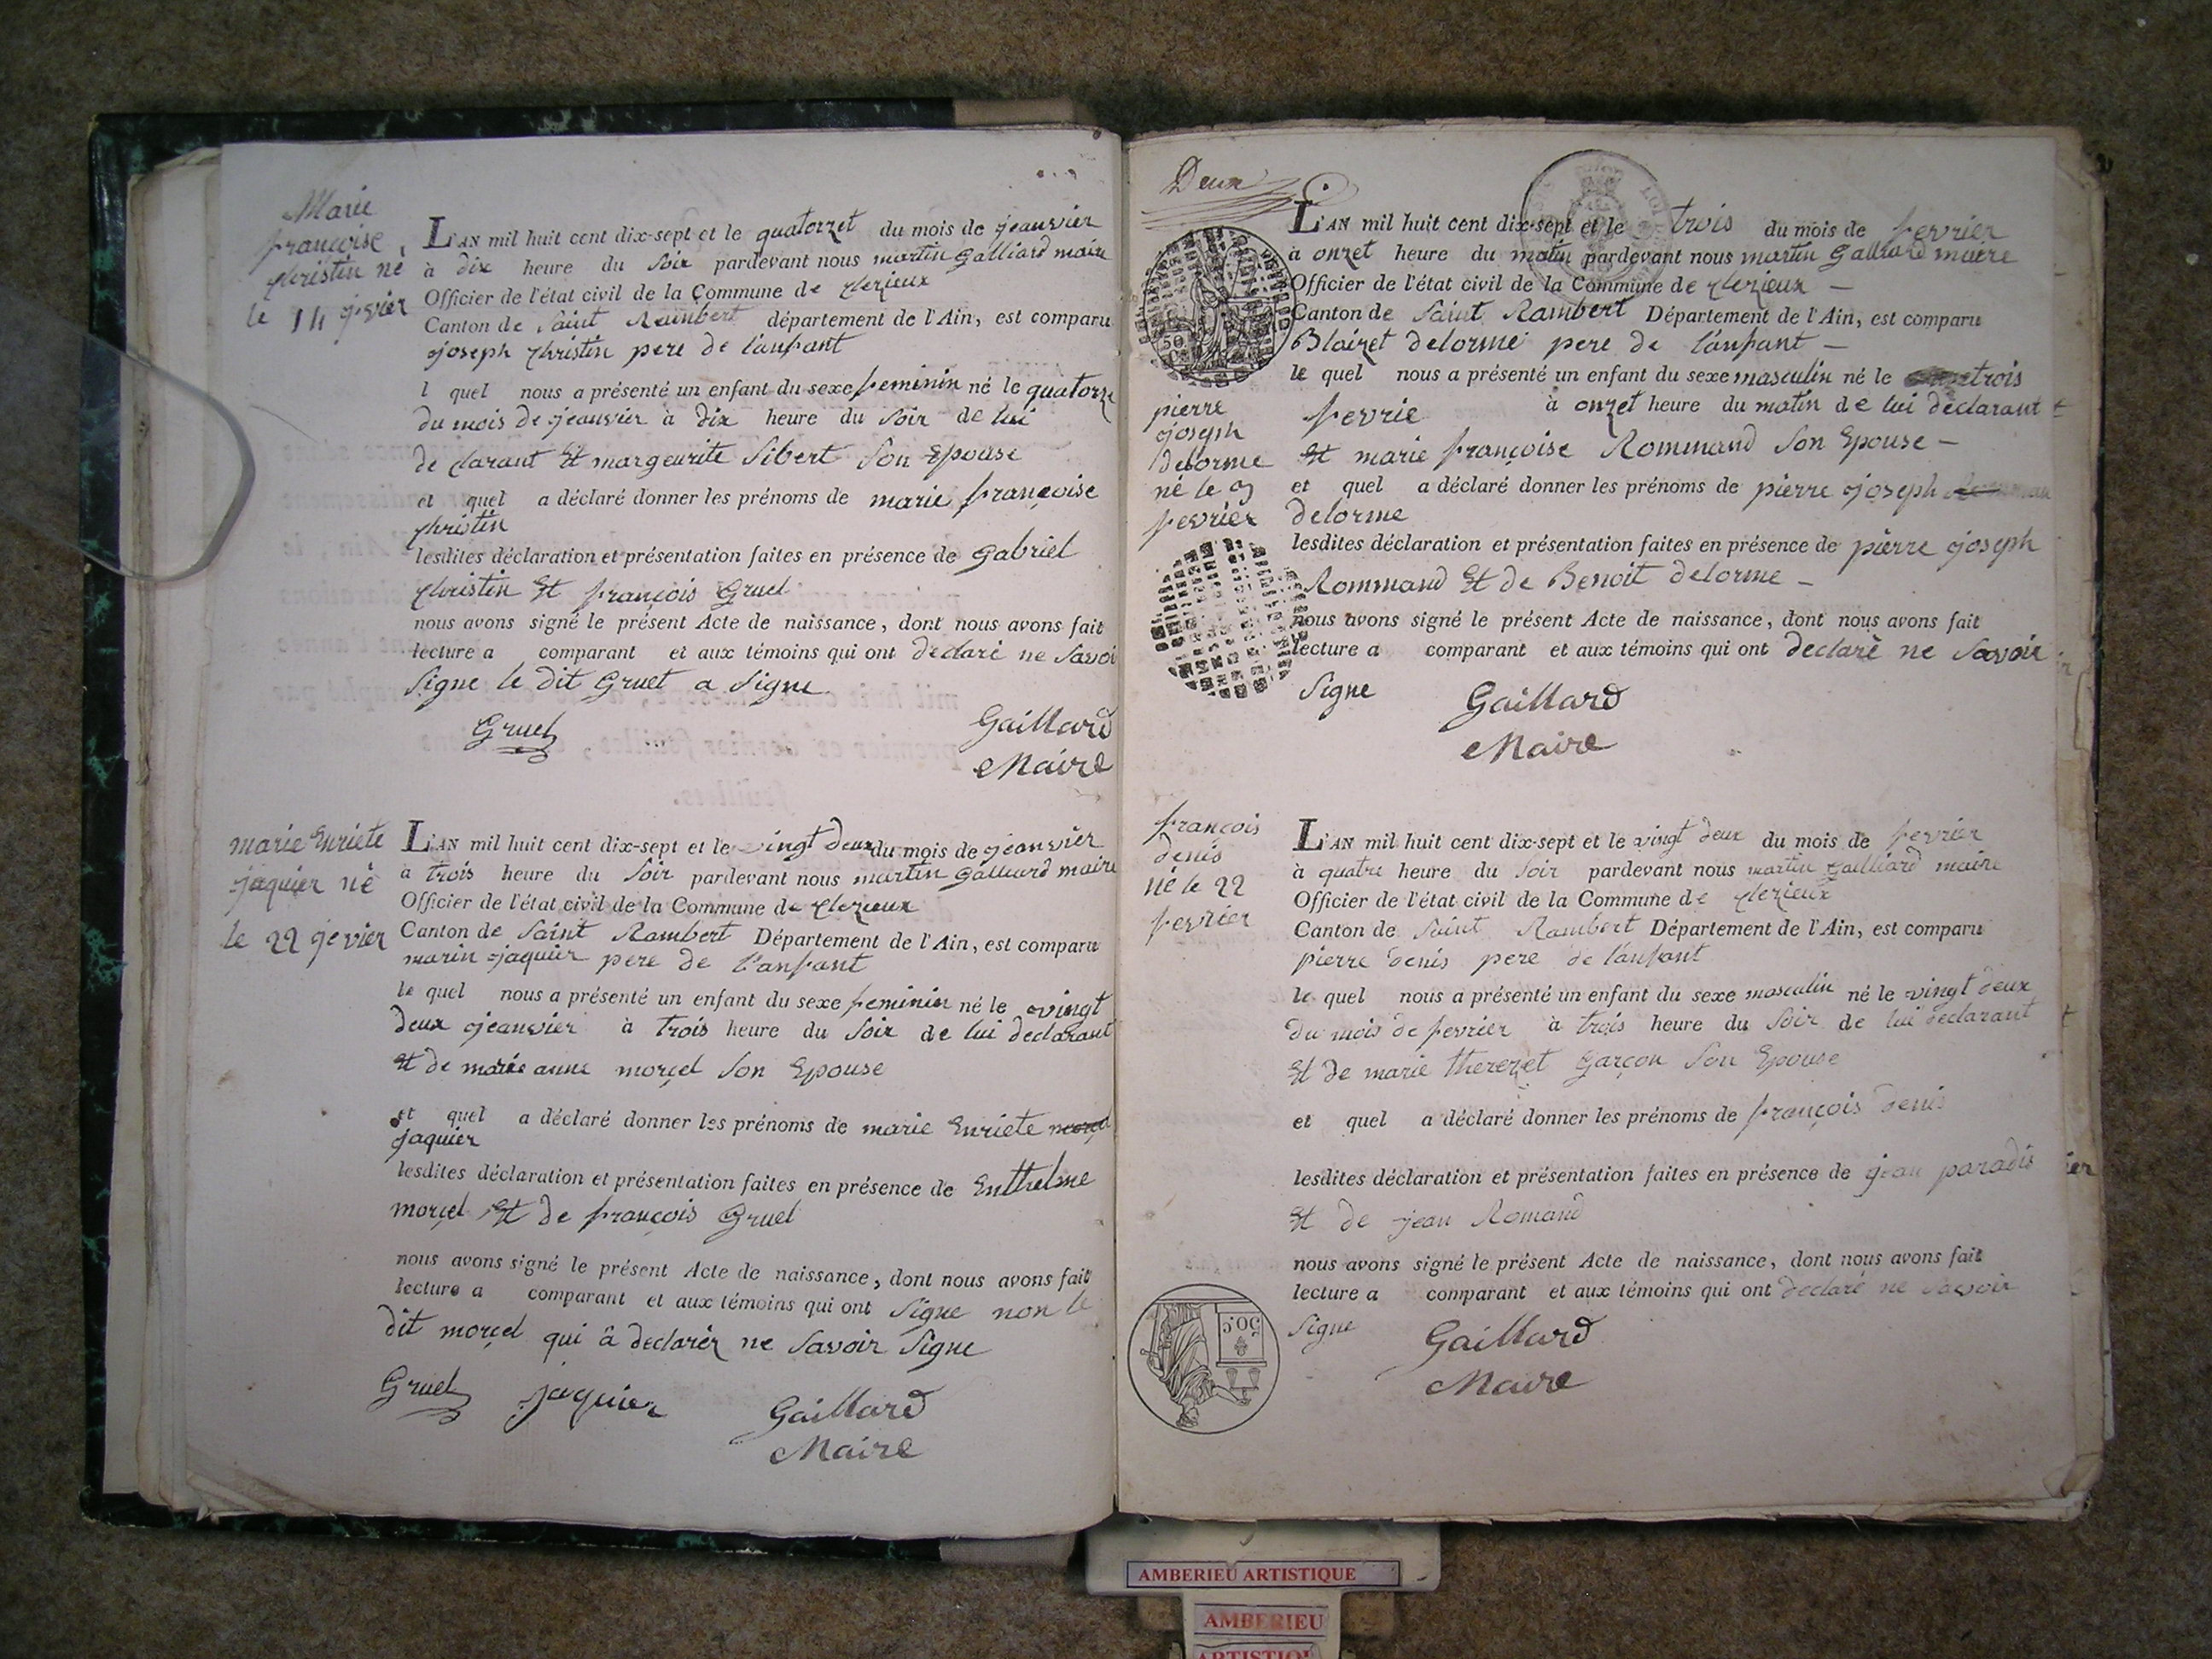 Marie
françoise
christin né
le 14 jevier
L'AN mil huit cent dix-sept et le quatorzet du mois de jeanvier
à dix heure du soir pardevant nous martin Galliard maire
Officier de l'état civil de la Commune de clezieux
Canton de Saint Rambert département de l'Ain, est comparu
joseph christin pere de l'anfant
l quel nous a présenté un enfant du sexe feminin né le quatorze
du mois de jeanvier à dix heure du soir de lui
de clarant Et margeurite Sibert Son Epouse
et quel a déclaré donner les prénoms de marie françoise
christin
lesdites déclaration et présentation faites en présence de Gabriel
christin Et françois Gruel
nous avons signé le présent Acte de naissance, dont nous avons fait
lecture a comparant et aux témoins qui ont declaré ne Savoi
Signe le dit Gruet a Signe
Gruel Gaillard
Maire
marie Enriete
jaquier né
le 22 jevier
L'AN mil huit cent dix-sept et le vingt deux du mois de jeanvier
à trois heure du Soir pardevant nous martin Galliard maire
Officier de l'état civil de la Commune de clezieux
Canton de Saint Rambert Département de l'Ain, est comparu
marin jaquier pere de l'anfant
le quel nous a présenté un enfant du sexe feminin né le vingt
deux jeanvier à trois heure du Soir de lui declarant
Et de marie anne morçel Son Epouse
et quel a déclaré donner les prénoms de marie Enriete
jaquier
lesdites déclaration et présentation faites en présence de Enthelme
morçel Et de françois Gruel
nous avons signé le présent Acte de naissance, dont nous avons fait
lecture a comparant et aux témoins qui ont Signe non le
dit morçel qui â declarér ne Savoir Signe
Gruel jaquier Gaillard
Maire
Deux
L'AN mil huit cent dix-sept et le trois du mois de fevrier
à onzet heure du matin pardevant nous martin Galliard maire
Officier de l'état civil de la Commune de clezieux —
Canton de Saint Rambert Département de l'Ain, est comparu
Blaizet delorme pere de l'anfant —
le quel nous a présenté un enfant du sexe masculin né le trois
fevrie à onzet heure du matin de lui déclarant
Et marie françoise Rommand Son Epouse —
et quel a déclaré donner les prénoms de pierre joseph
delorme
lesdites déclaration et présentation faites en présence de pierre joseph
Rommand Et de Benoit delorme —
nous avons signé le présent Acte de naissance, dont nous avons fait
lecture a comparant et aux témoins qui ont declaré ne Savoir
Signe Gaillard
Maire
pierre
joseph
delorme
né le 3
fevrier
françois
denis
né le 22
fevrier
L'AN mil huit cent dix-sept et le vingt deux du mois de fevrier
à quatre heure du Soir pardevant nous martin Galliard maire
Officier de l'état civil de la Commune de clezieux
Canton de Saint Rambert Département de l'Ain, est comparu
pierre denis pere de l'anfant
le quel nous a présenté un enfant du sexe masculin né le vingt deux
du mois de fevrier à trois heure du Soir de lui declarant
Et de marie therezet Garçon Son Epouse
et quel a déclaré donner les prénoms de françois denis
lesdites déclaration et présentation faites en présence de jean paradis
Et de jean Romand
nous avons signé le présent Acte de naissance, dont nous avons fait
lecture a comparant et aux témoins qui ont declaré ne Savoir
Signe Gaillard
Maire
50 C.
AMBERIEU ARTISTIQUE
AMBERIEU
ARTISTIQU